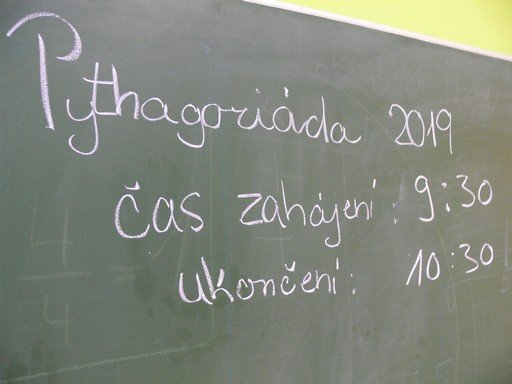 Pythagoriáda 2019
čas zahájení: 9:30
ukončení: 10:30